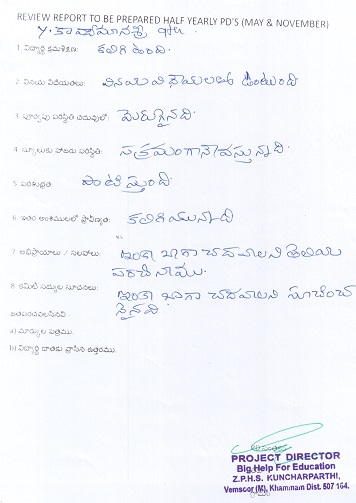 REVIEW REPORT TO BE PREPARED HALF YEARLY PD'S (MAY & NOVEMBER)
9th
1. విద్యార్థి క్రమశిక్షణ: కలిగి ఉంది
2. వినయ విధేయతలు: వినయ విధేయతలతో ఉంటుంది
3. పూర్వపు పరిస్థితి చదువులో: మెరుగైనది.
4. స్కూలుకు హాజరు పరిస్థితి: సక్రమంగానే వస్తున్నది.
5. పరిశుభ్రత: పాటిస్తుంది.
6. ఇతర అంశములలో ప్రావీణ్యత: కలిగియున్నది
7. అభిప్రాయాలు / సలహాలు: ఇంకా బాగా చదవాలని తెలియ
పరచినాము.
8. కమిటీ సభ్యుల సూచనలు: ఇంకా బాగా చదవాలని సూచించ
నైనది.
జతపరచవలసినవి
a) మార్కుల పత్రము.
b) విద్యార్థి దాతకు వ్రాసిన ఉత్తరము.
PROJECT DIRECTOR
Big Help For Education
Z.P.H.S. KUNCHARPARTHI,
Vemsoor (M), Khammam Dist. 507 164.